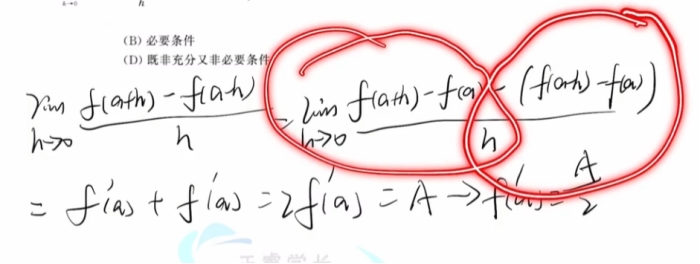 h→0 h
(B) 必要条件
(D) 既非充分又非必要条件
lim_{h→0} \frac{f(a+h)-f(a-h)}{h} = lim_{h→0} \frac{f(a+h)-f(a)-(f(a-h)-f(a))}{h}
= f'(a) + f'(a) = 2f'(a) = A → f'(a) = \frac{A}{2}